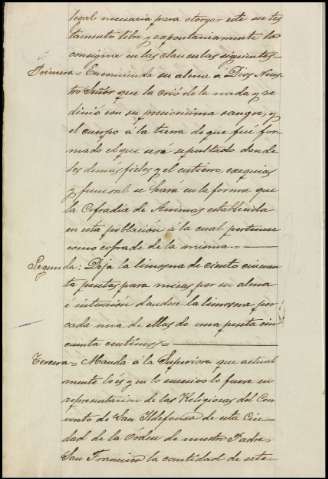 legal necesaria para otorgar este su tes-
tamento libre y espontaneamente lo
consigna en las clausulas siguientes.
Primera = Encomienda su alma a Dios Nues-
tro Señor que la crió de la nada y re-
dimió con su preciosisima sangre, y
el cuerpo á la tierra de que fué for-
mado el que será sepultado donde
los demás fieles y el entierro, exequias
y funeral se hara en la forma que
la Cofradia de Animas establecida
en esta poblacion á la cual pertenece
como cofrade de la misma.
Segunda = Deja la limosna de ciento cincuen-
ta pesetas para misas por su alma
é intención dandose la limosna por
cada una de ellas de una peseta cin-
cuenta centimos.
Tercera = Manda á la Superiora que actual-
mente lo és y en lo sucesivo lo fuera en
representacion de las Religiosas del Con-
vento de San Ildefonso de esta Ciu-
dad de la Orden de nuestro Padre
San Francisco la cantidad de sete-